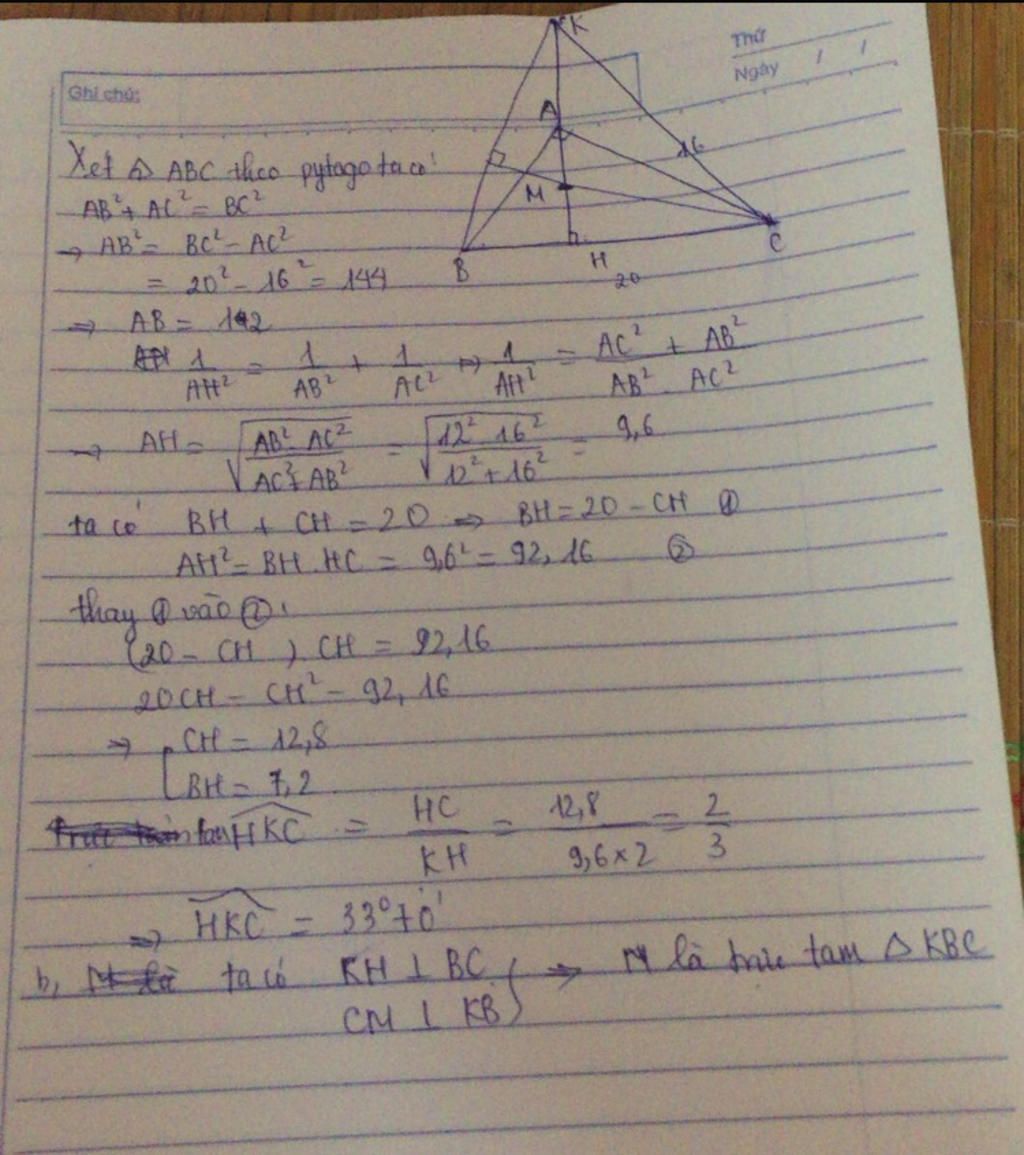 Thứ
Ngày / /
Ghi chú:
K
A
16
M
B
H
C
20
Xét △ ABC theo pytago ta có
AB² + AC² = BC²
→ AB² = BC² - AC²
= 20² - 16² = 144
⇒ AB = 12
1/AH² = 1/AB² + 1/AC² ⇒ 1/AH² = AC² + AB² / AB² . AC²
→ AH = √(AB² AC² / AC² + AB²) = √(12² 16² / 12² + 16²) = 9,6
ta có BH + CH = 20 ⇒ BH = 20 - CH ①
AH² = BH . HC = 9,6² = 92,16 ②
thay ① vào ② :
(20 - CH ) . CH = 92,16
20CH - CH² - 92,16
⇒ [ CH = 12,8
BH = 7,2
tan HKC = HC/KH = 12,8 / 9,6 × 2 = 2/3
⇒ HKC = 33°
b, ta có KH ⊥ BC
CM ⊥ KB } ⇒ M là trực tam △ KBC